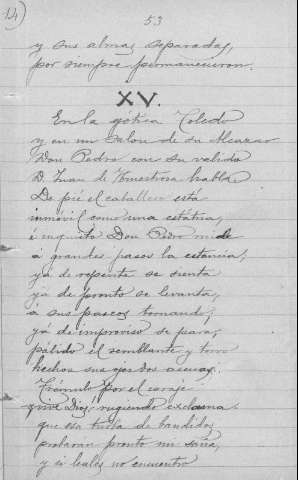 14)
53
y sus almas separadas,
por siempre permanecieron.
XV.
En la gótica Toledo
y en un salon de su Alcazar
Don Pedro con su valido
D. Juan de Hinestrosa habla.
De pié el caballero está
inmóvil como una estátua,
é inquieto Don Pedro mide
á grandes pasos la estancia,
yá de repente se sienta
yá de pronto se levanta,
á sus paseos tornando,
yá de improviso se para,
pálido el semblante y torvo
hechos sus ojos dos ascuas.
Trémulo por el coraje
¡vive Dios! rugiendo exclama
que esa turba de bandidos
probarán pronto mi saña,
y si leales no encuentro